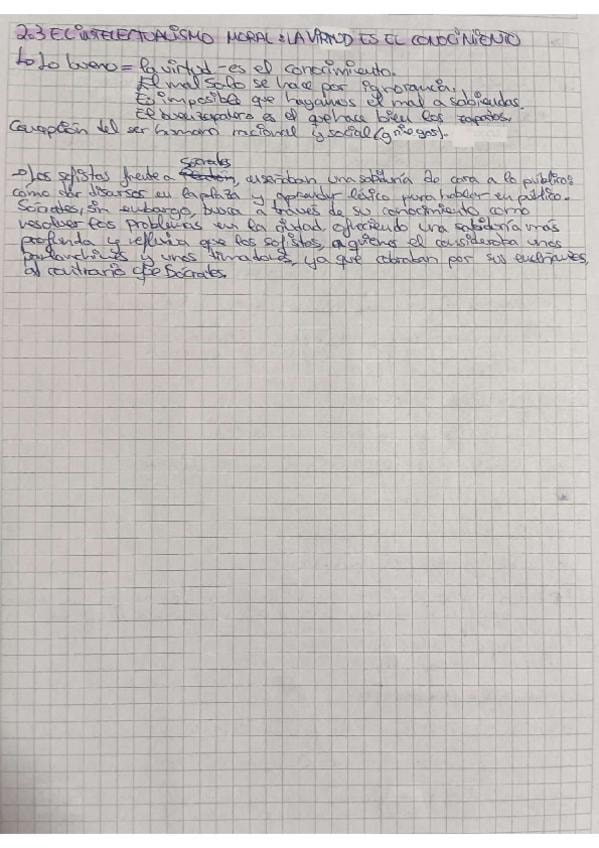 2.3 EL INTELECTUALISMO MORAL: LA VIRTUD ES EL CONOCIMIENTO
↳ Lo bueno = la virtud - es el conocimiento.
El mal solo se hace por ignorancia.
Es imposible que hagamos el mal a sabiendas.
El buen zapatero es el que hace bien los zapatos.
Concepción del ser humano racional y social (griegos).
→ Los sofistas frente a Sócrates, enseñaban una sabiduría de cara a lo público:
como dar discursos en la plaza y aprender léxico para hablar en público.
Sócrates, sin embargo, busca a través de su conocimiento como
resolver los problemas en la ciudad, ofreciendo una sabiduría más
profunda y reflexiva que los sofistas, a quienes el consideraba unos
parlanchines y unos timadores, ya que cobraban por sus enseñanzas,
al contrario que Sócrates.